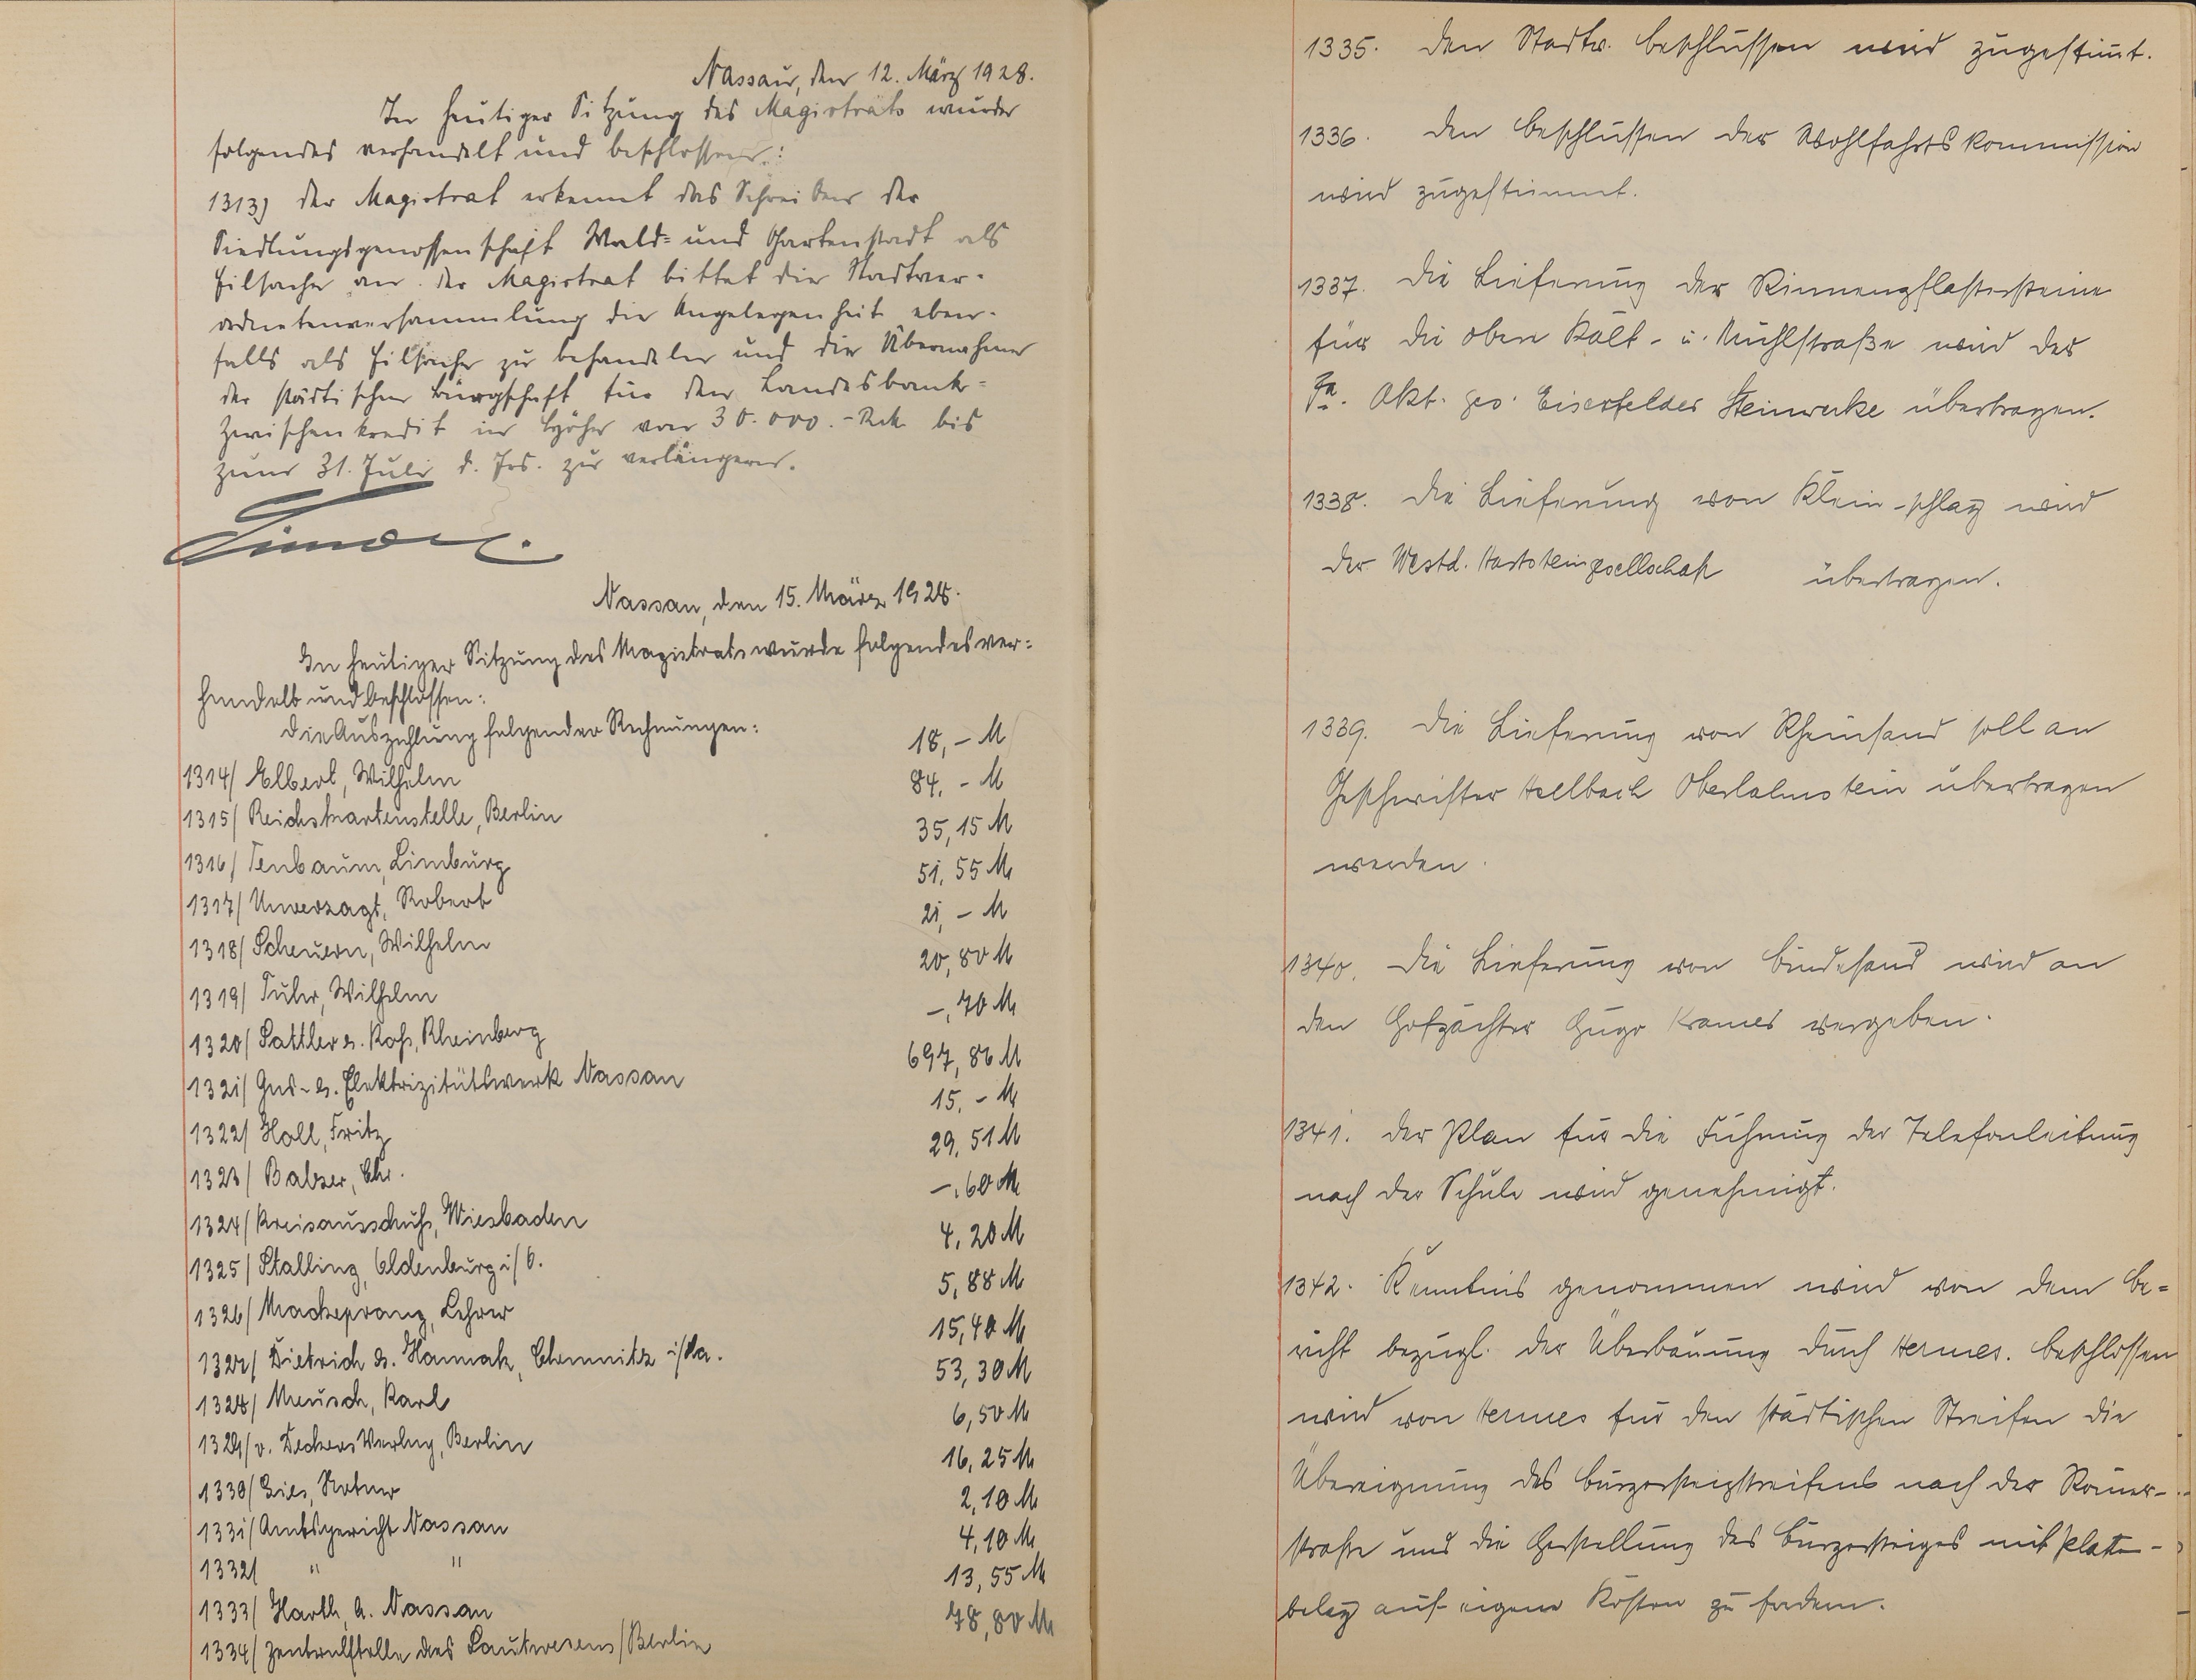 Nassau, den 12. März 1928.
In heutiger Sitzung des Magistrats wurde
folgendes verhandelt und beschlossen:
1313) Der Magistrat erkennt das Schreiben der
Siedlungsgenossenschaft Wald= und Gartenstadt als
Eilsache an. Der Magistrat bittet die Stadtver-
ordnetenversammlung die Angelegenheit eben-
falls als Eilsache zu behandeln und die Übernahme
der städtischen Bürgschaft für den Landesbank=
zwischenkredit in Höhe von 30.000.- Rm. bis
zum 31. Juli d. Jrs. zu verlängern.
Nassau, den 15. März 1928.
In heutiger Sitzung des Magistrats wurde folgendes ver=
handelt und beschlossen:
Die Auszahlung folgender Rechnungen:
1314/ Elbert, Wilhelm 18,- M
1315/ Reichskartenstelle, Berlin 84,- M
1316/ Tenbaum, Limburg 35,15 M
1317/ Unverzagt, Robert 51,55 M
1318/ Scheuern, Wilhelm 21,- M
1319/ Wilhelm 20,80 M
1320/ Sattler u. Koss, Rheinberg -,70 M
1321/ Gas- u. Elektrizitätswerk Nassau 697,86 M
1322/ Holl, Fritz 15,- M
1323/ Balzer, Chr. 29,51 M
1324/ Kreisausschuss, Wiesbaden -,60 M
1325/ Stalling, Oldenburg i/O. 4,20 M
1326/ Mackeprang, Lehrer 5,88 M
1327/ Dietrich u. Hannak, Chemnitz i/Sa. 15,40 M
1328/ Meusch, Karl 53,30 M
1329/ v. Deckers Verlag, Berlin 6,50 M
1330/ Notar 16,25 M
1331/ Amtsgericht Nassau 2,10 M
1332/ " " 4,10 M
1333/ Harth, A. Nassau 13,55 M
1334/ Zentralstelle des Berlin 78,80 M
1335. Den Stadtv. beschlüssen wird zugestimt.
1336. Den Beschlüssen der Wohlfahrtskommission
wird zugestimmt.
1337. Die Lieferung der Rinnenpflastersteine
für die obere Kalt- u. Mühlstraße wird der
Fa. Akt. ges. Eiserfelder Steinwerke übertragen.
1338. Die Lieferung von Klein-schlag wird
der Westd. Hartsteingesellschaft übertragen.
1339. Die Lieferung von Rheinsand soll an
Geschwister Hellbach Oberlahnstein übertragen
werden.
1340. Die Lieferung von Bindesand wird an
den Hofpächter Hugo Kramer vergeben.
1341. Der Plan für die Führung der Telefonleitung
nach der Schule wird genehmigt.
1342. Kenntnis genommen wird von dem Be=
richt bezügl. der Überbauung durch Hermes. Beschlossen
wird von Hermes für den städtischen Streifen die
Übereignung des Bürgersteigstreifens nach der Römer-
strasse und die Herstellung des Bürgersteiges mit Platten-
belag auf eigene Kosten zu fordern.